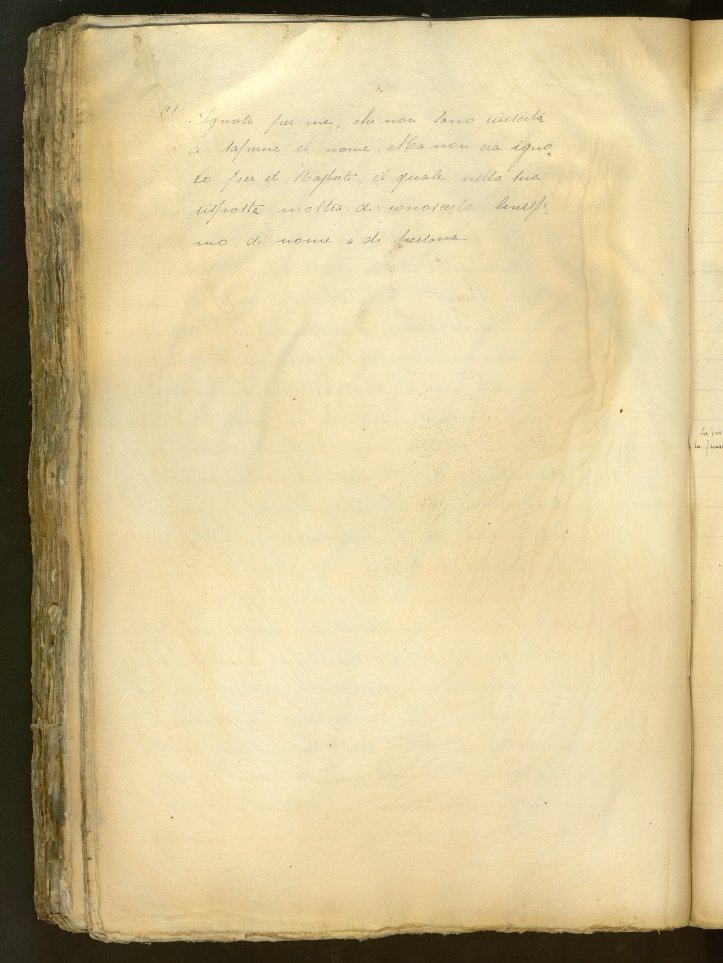 (1) Ignoto per me, che non sono riuscita
a saperne il nome. Ma non era igno-
to per il Rajberti, il quale nella sua
risposta mostra di conoscerlo benissi-
mo di nome e di persona